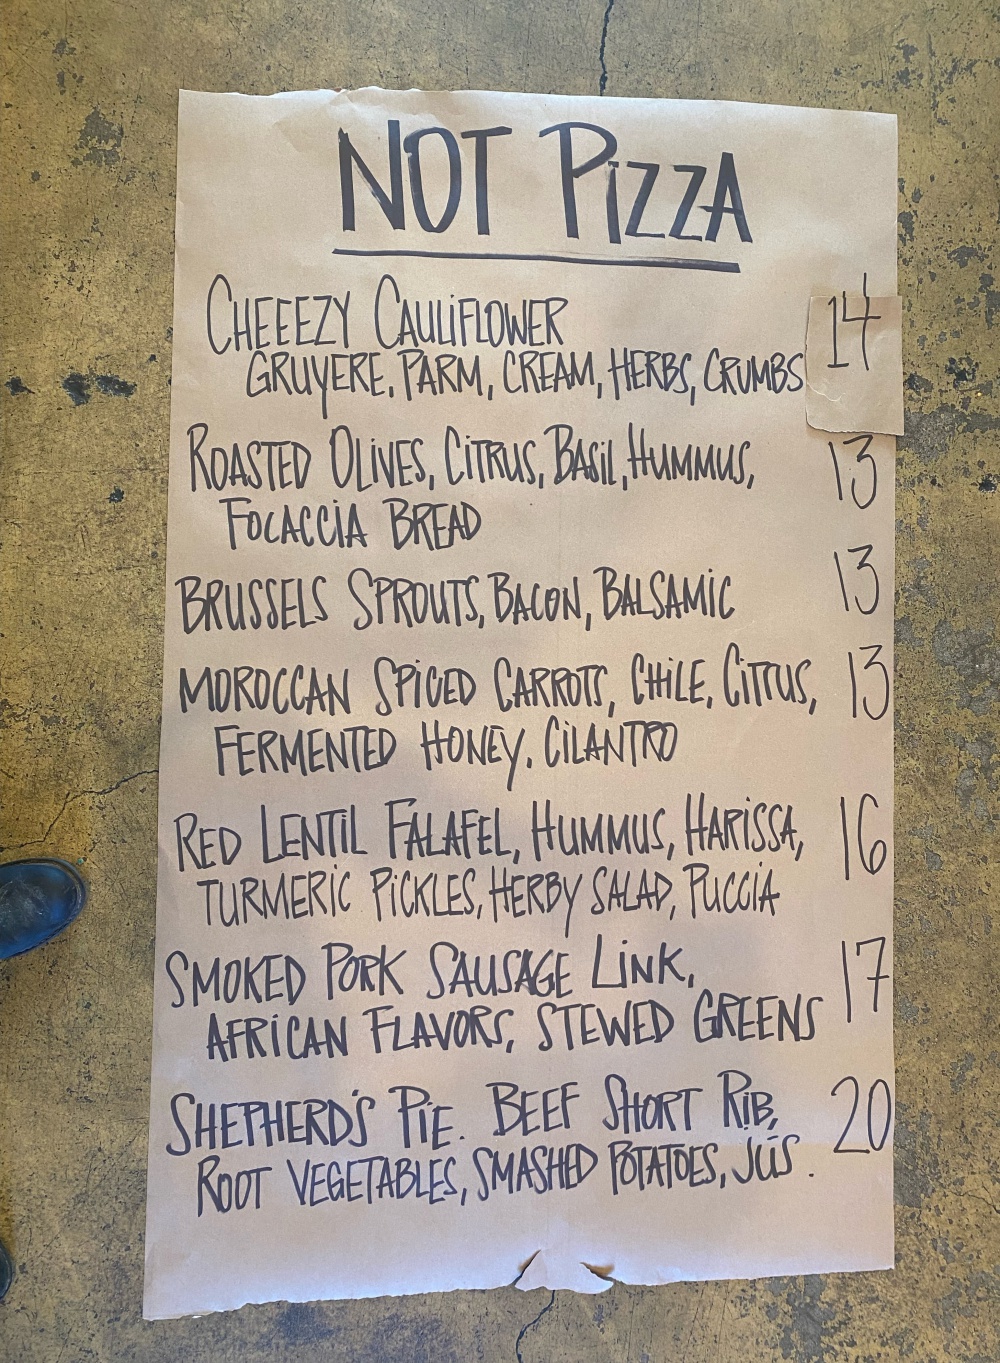 NOT PiZZA
CHEEEZY CAULiFLOWER 14
GRUYERE, PARM, CREAM, HERBS, CRUMBS
ROASTED OLiVES, CiTRUS, BASiL, HUMMUS, 13
FOCACCiA BREAD
BRUSSELS SPROUTS, BACON, BALSAMiC 13
MOROCCAN SPiCED CARROTS, CHiLE, CiTRUS, 13
FERMENTED HONEY, CiLANTRO
RED LENTiL FALAFEL, HUMMUS, HARiSSA, 16
TURMERiC PiCKLES, HERBY SALAD, PUCCiA
SMOKED PORK SAUSAGE LiNK, 17
AFRiCAN FLAVORS, STEWED GREENS
SHEPHERD'S PiE. BEEF SHORT RiB, 20
ROOT VEGETABLES, SMASHED POTATOES, JUS.